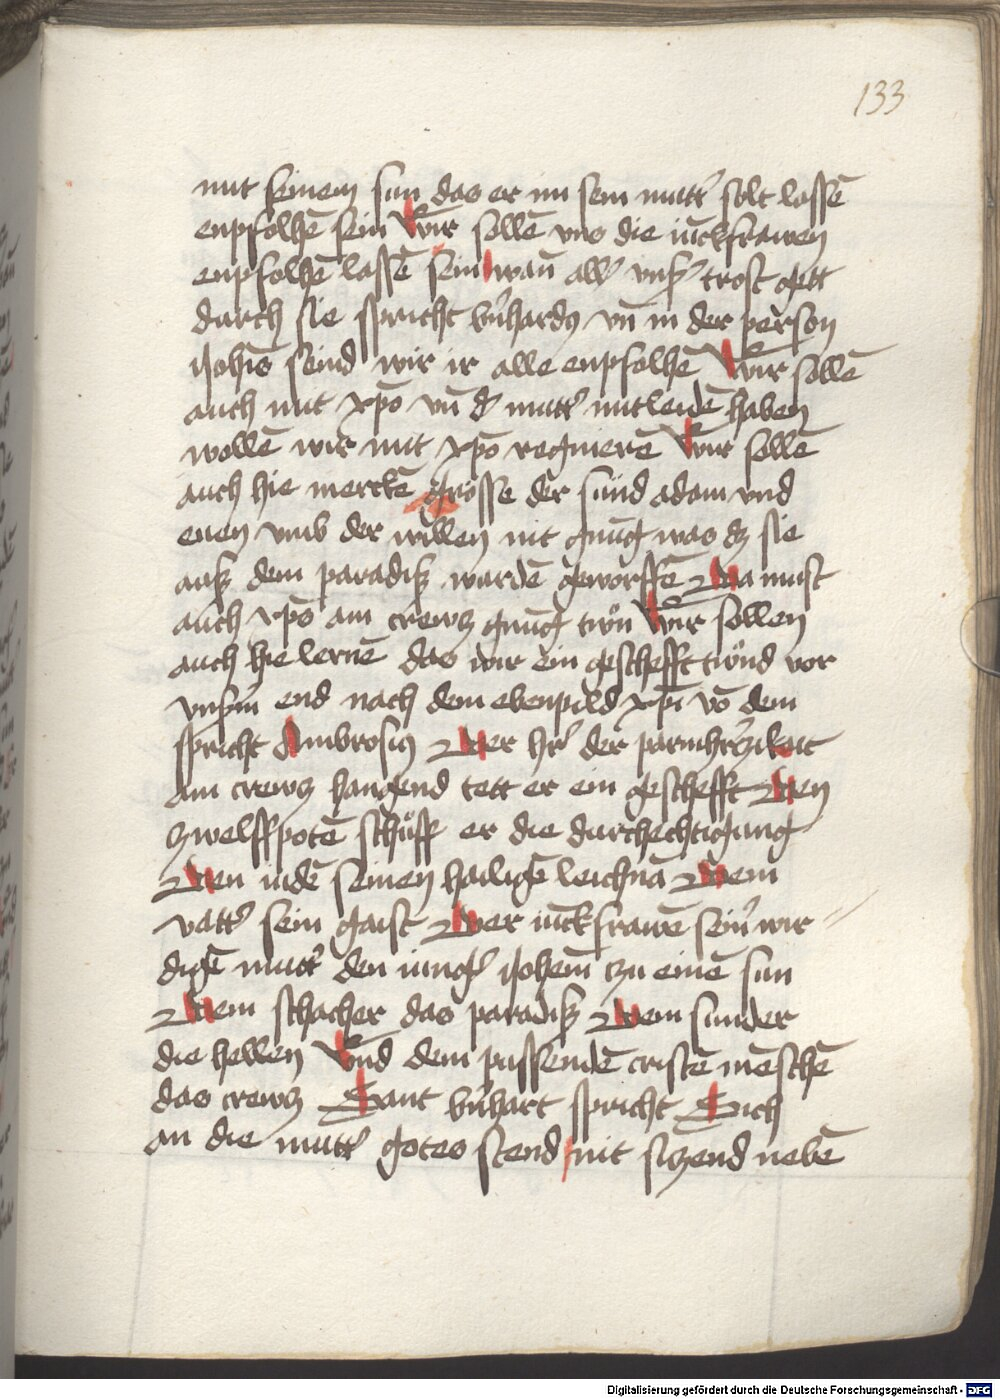 133
mit seinem sun das er im sein mutt' solt lassē
enpfolhē sein Wir sollē vns die iūckfrawen
enpfolhē lassē sein wan̄ all' vnser trost gett
durch sie spricht b'nhardꝯ vn̄ in der person
iohīs seind wir ir alle enpfolhē Wir sollē
auch mit xp̄o vn̄ d' mutt' mitleidē haben
wollē wir mit xp̄o regnierē Wir sollē
auch hie merckē grosse der sünd adam vnd
euen vmb der willen nit gnūg was dz sie
auß dem paradiß wurdē geworffē Da must
auch xp̄o am crewtz gnūg twn̄ Wir sollen
auch hie lernē das wir ein geschefft tund vor
vnserm end nach dem ebenpild xp̄i vō dem
spricht Ambrosiꝯ Der h'r der parmh'rtzikait
am crewtz hangend tett er ein geschefft Den
zwelffpotē schuff er die durchechtigung
Den iudē seinen hailigē leichnā Dem
vatt' sein gaist Der iūckfrawē sein' wir-
digē mutt' den iung' iohem̄ tzu einē sun
Dem schacher das paradiß Dem sunder
die hellen Vnd dem pussendē cristē mēschē
das crewtz Sant b'nhart spricht Sich
an die mutt' gotes stend nit sitzend nebē
Digitalisierung gefördert durch die Deutsche Forschungsgemeinschaft - DFG